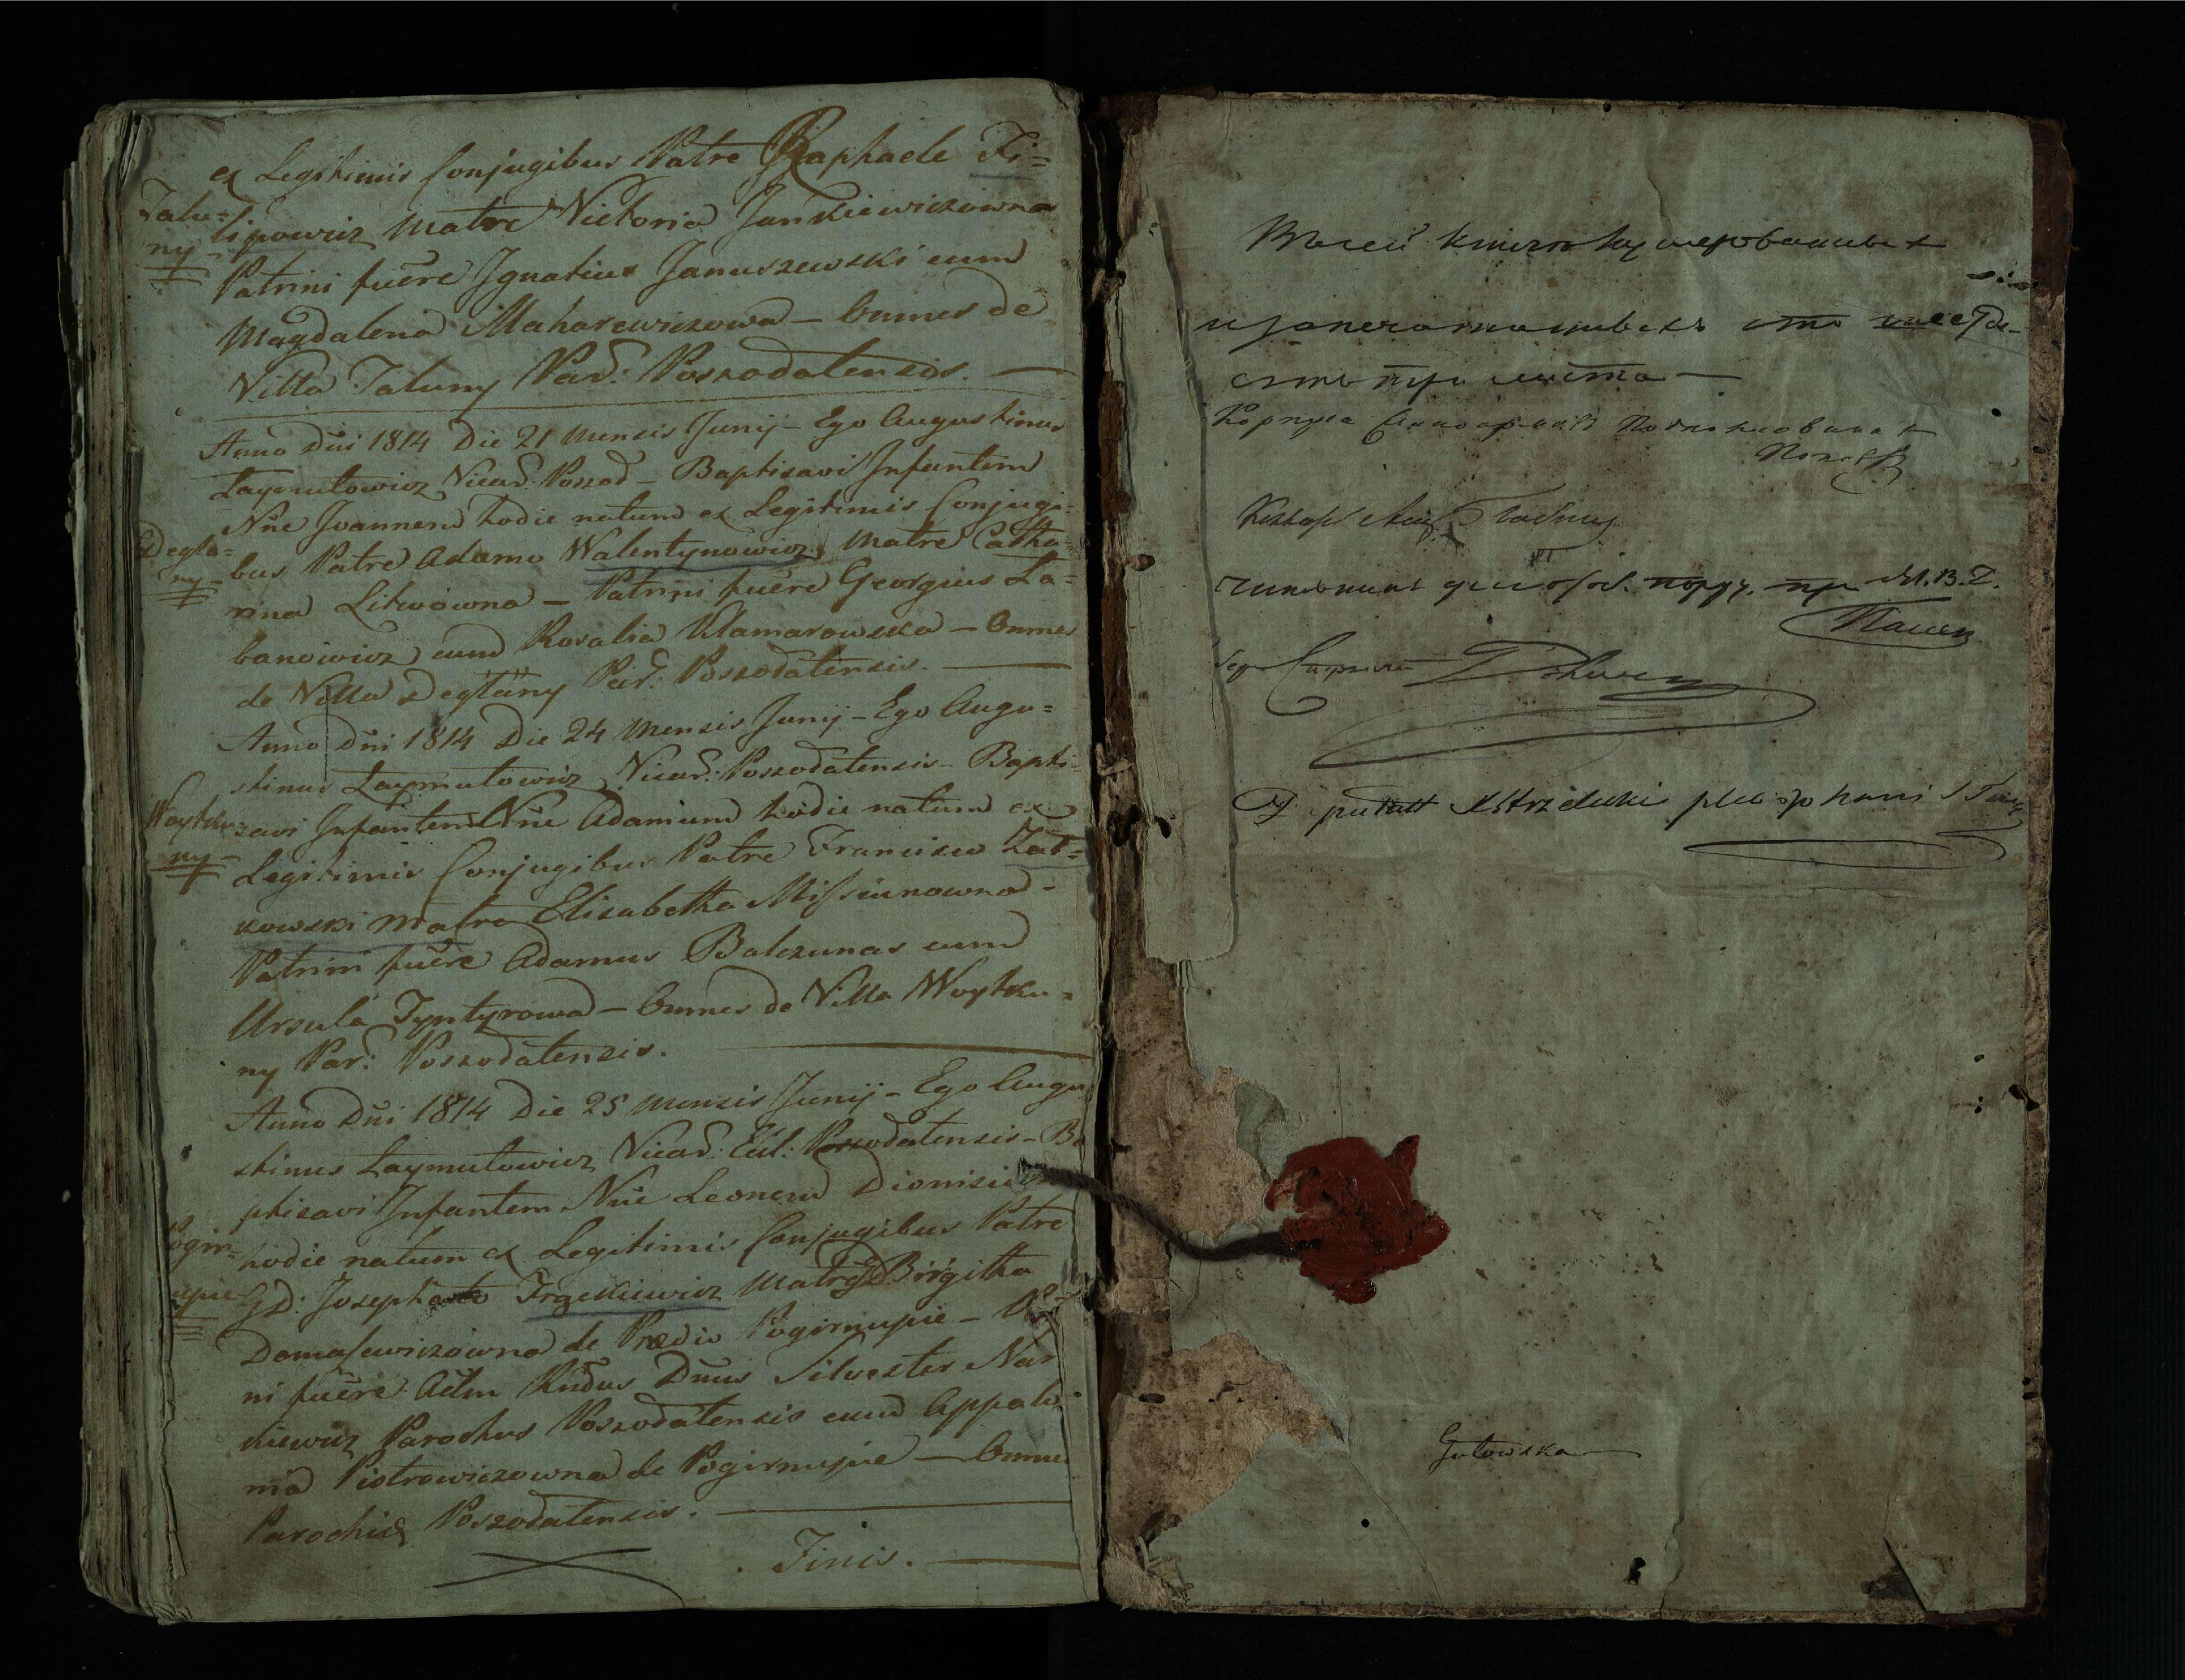 ex Legitimis Conjugibus Patre Raphaele Fi=
Talu=
ny
lipowicz Matre Victoria Jankiewiczowna
Patrini fuere Ignatius Januszewski cum
Magdalena Maharewiczowa – Omnes de
Villa Taluny Par: Poszodatensis. —
Anno Dni 1814 Die 21 Mensis Junij – Ego Augustinus
Laymutowicz Vicar: Poszod – Baptisavi Infantem
Nne Joannem hodie natum ex Legitimis Conjugi=
Degla=
ny
bus Patre Adamo Walentynowicz Matre Catha=
rina Litwowna – Patrini fuere Georgius La=
banowicz cum Rosalia Klamarowska – Omnes
de Villa Deglany Par: Poszodatensis. —
Anno Dni 1814 Die 24 Mensis Junij – Ego Augu=
stinus Laymutowicz Vicar: Poszodatensis – Bapti=
Woytku=
ny
zavi Infantem Nne Adamum hodie natum ex
Legitimis Conjugibus Patre Francisco Zat=
kowski Matre Elisabetha Missiunowna –
Patrini fuere Adamus Balczunas cum
Ursula Tyntyrowa – Omnes de Villa Woytku=
ny Par: Poszodatensis. —
Anno Dni 1814 Die 25 Mensis Junij – Ego Augu
stinus Laymutowicz Vicar: Eccl: Poszodatensis – Ba
ptisavi Infantem Nne Leonem Dionisium
Pogir=
nupie
hodie natum ex Legitimis Conjugibus Patre
GD: Josepho Frąckiewicz Matre Birgitha
Domasewiczowna de Prædio Pogirnupie –
ni fuere Adm Rndus Dnus Silvester Nar
kiewicz Parochus Poszodatensis cum Appalo
nia Piotrowiczowna de Pogirnupie — Omnes
Parochiæ Poszodatensis. —
Finis. —
Всей книги нумерованных
и запечатанных сто шестьде-
сять три листа —
Корпуса Жандармов Подполковник
чиновник для особ. поруч. при М.В.Д.
Gutowska —